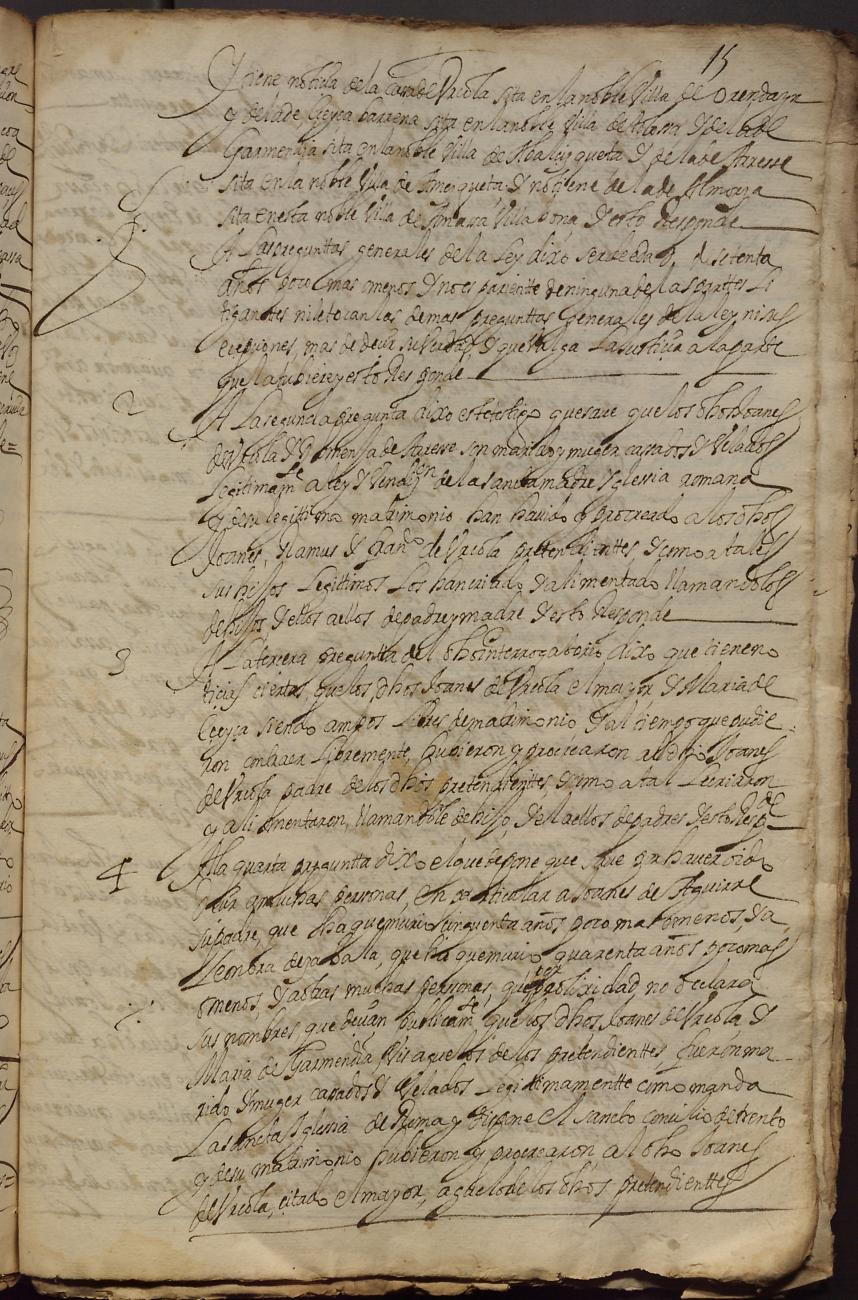 15
Y tiene noticia de la Casa de Urcola sita en la noble Villa de Orendayn
y de la de Eleyca barrena sita en la noble Villa de y de la de
Garmendia sita en la noble Villa de Abalcizqueta y de la de Iturrese
sita en la noble Villa de Amezqueta y no tiene de la de Almorza
sita en esta noble Villa de Villabona y esto Responde
A Las preguntas generales de la Ley dixo ser de edad de setenta
años poco mas o menos y no es pariente de ninguna de las partes Li
tigantes ni le tocan las demas preguntas Generales de la ley ni sus
ecepciones, mas de decir su verdad, y que Valga La Justicia a la parte
que la tubiere y esto Responde
2 A La segunda pregunta dixo este testigo que save que los dhos Joanes
de Urcola y de son marido y muger casados y Velados
Legitimamte a ley y bendicion de la sancta madre Yglesia romana
y de su legitimo matrimonio han havido y procreado a los dhos
Joanes, Ramus y de Urcola pretendienttes y como a tales
sus hijos Legittimos Los han criado y alimentado llamandolos
de hijos y ellos a ellos de padre y madre y esto Responde
3 A La tercera pregunta del dho interrogatorio dixo que tiene no
ticias ciertas, que los, dhos Joanes de Urcola el mayor y Maria de
Eleyca siendo ambos Libres de matrimonio y al tiempo que pudie
ron contraer Libremente, hubieron y procrearon al dho Joanes
de Urcola padre de los dhos pretendientes y como a tal Le criaron
y alimentaron, llamandole de hijo y el a ellos de padres y esto Respde
4 A la quarta pregunta dixo el que depone que save por haver oido
decir a muchas personas, en particular a Joanes de Aguirre
su padre, que ha que murio cinquenta años poco mas o menos, y a
Leonora de Zabala, que ha que murio quarenta años poco mas
o menos, y a otras muchas personas, que por prolixidad, no declara
sus nombres, que decian publicamte, que los dhos Joanes de Urcola y
Maria de Garmendia, Visaguelos de los pretendienttes, fueron ma
rido y muger casados y Velados Legitimamentte como manda
La sancta Iglesia de Roma y dispone el sancto concilio de trento
y de su matrimonio hubieron y procrearon al dho Joanes
de Urcola, citado el mayor, aguelo de los dhos pretendienttes